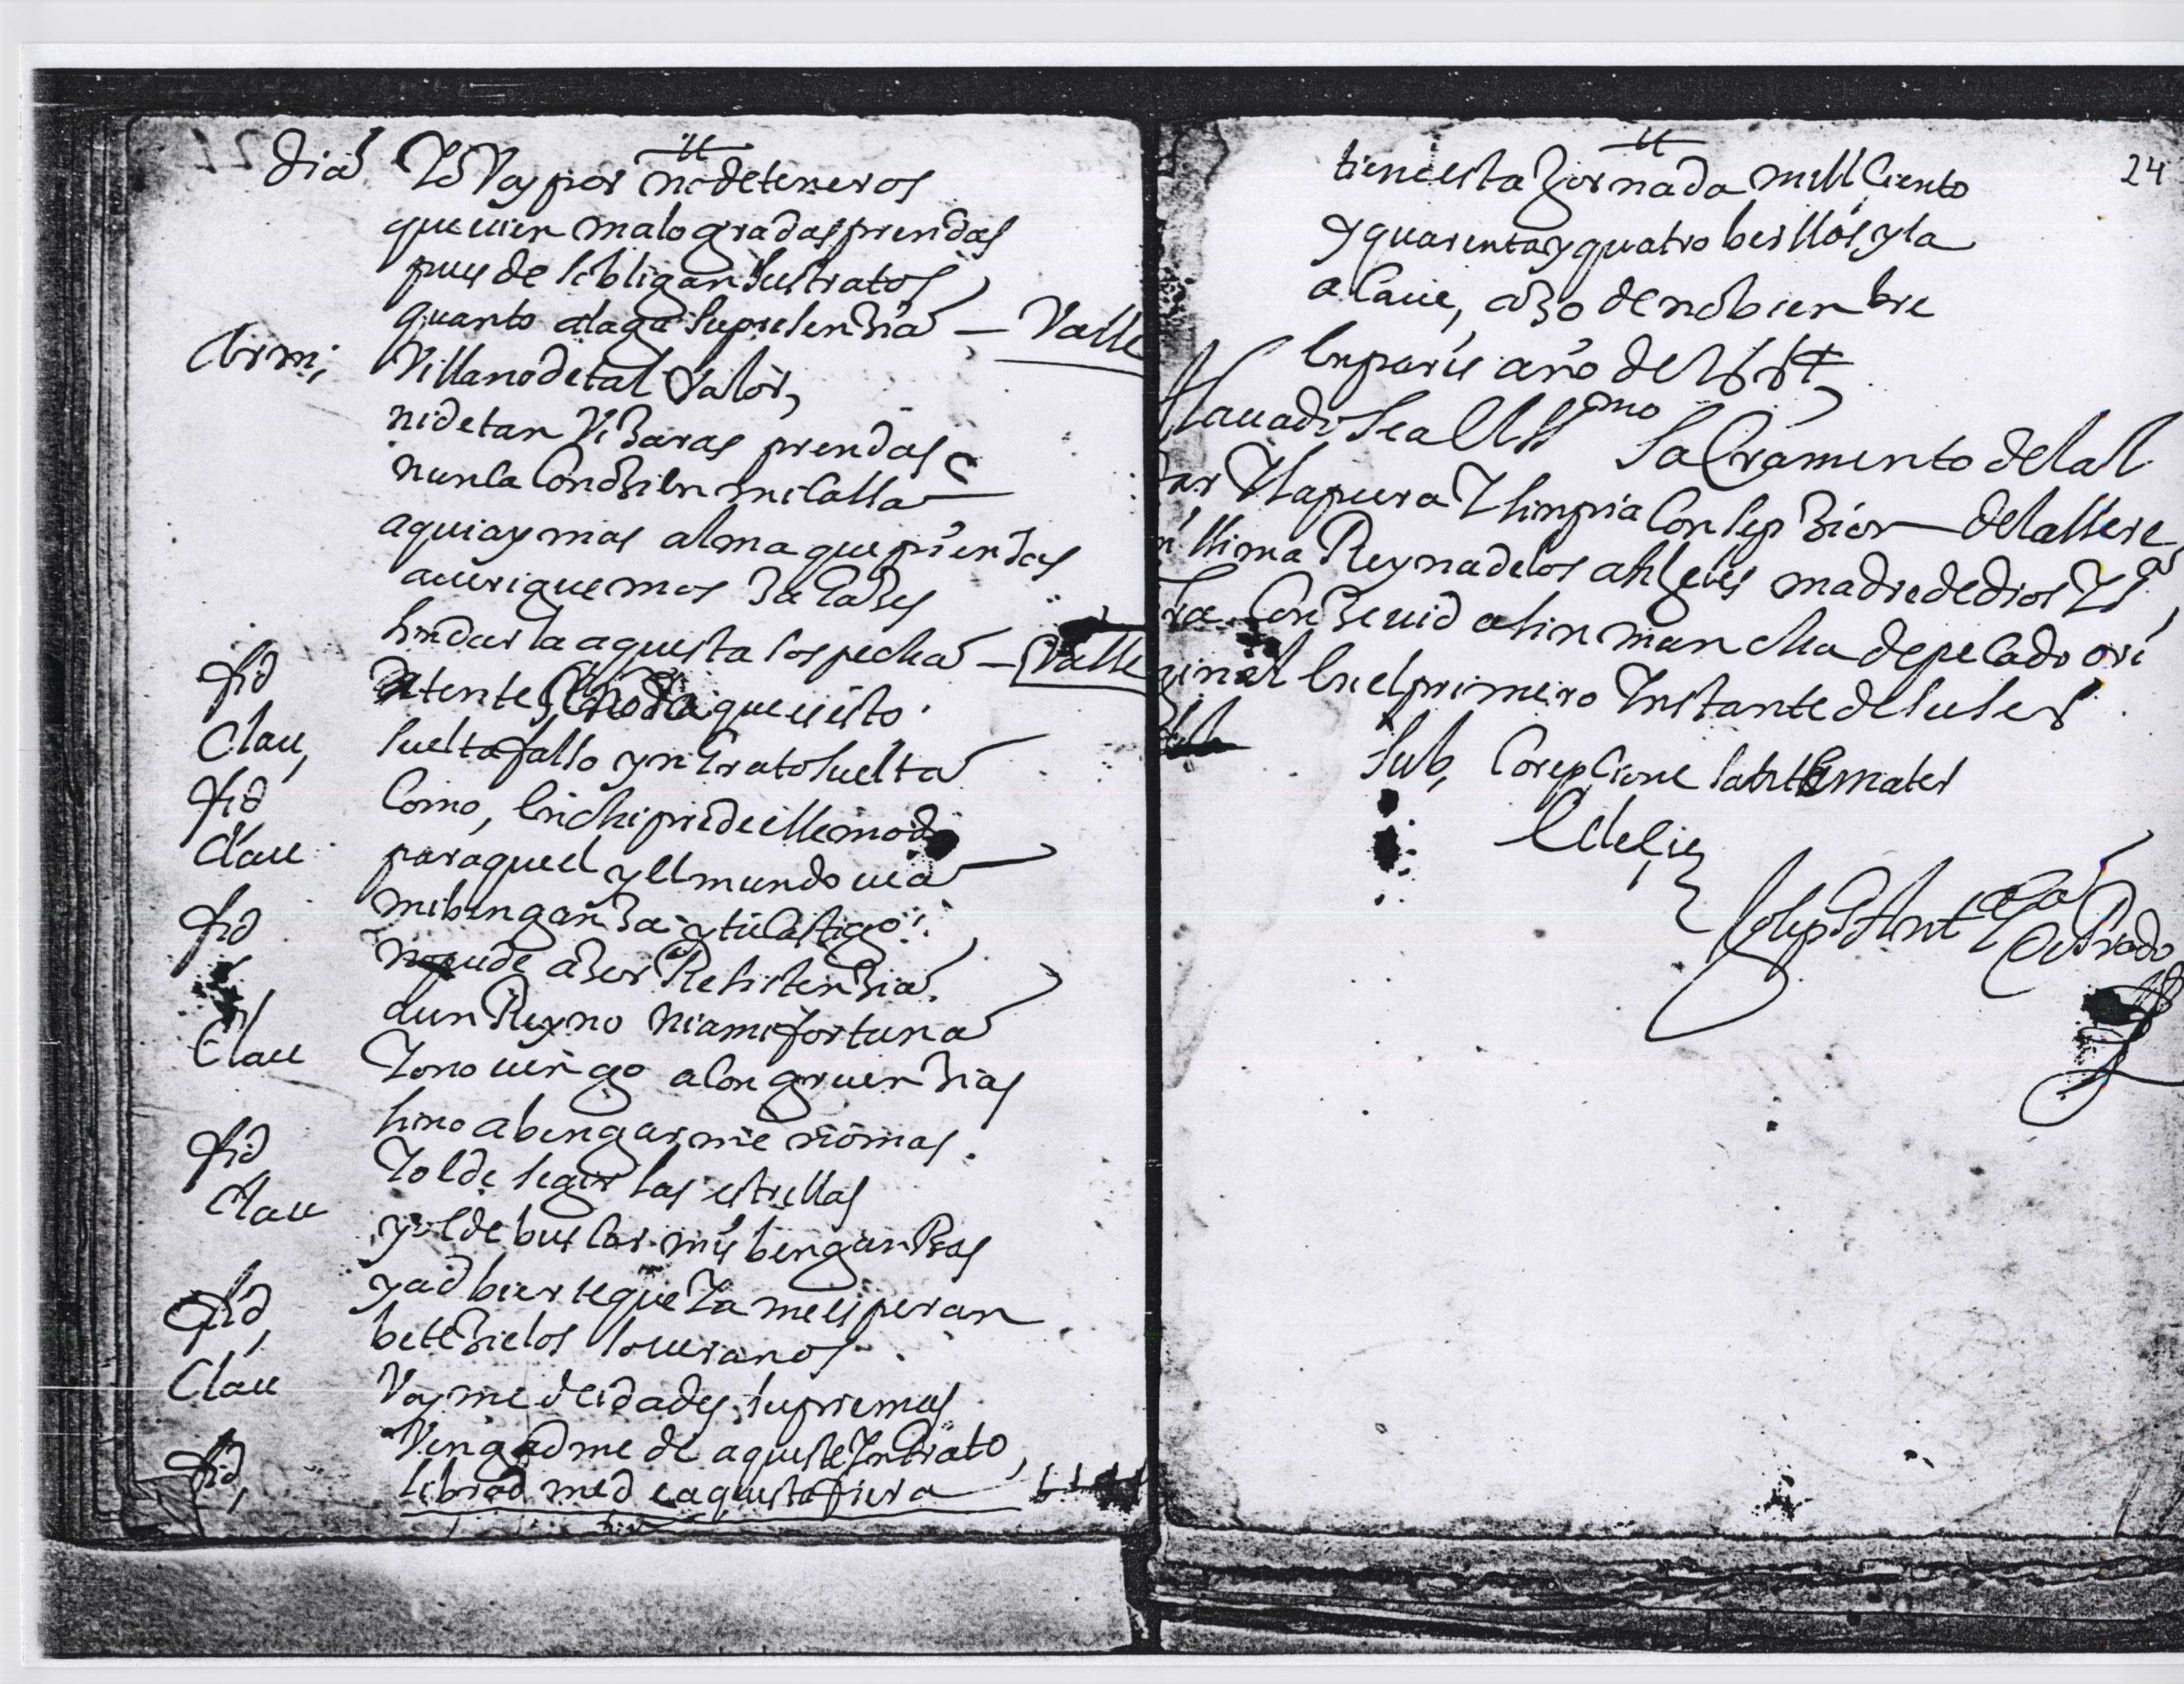 Dia Yo Voy por no deteneros
que uien malogradas prendas
pues de obligan sus tratos
quanto alaga su presenzia — Vasse
Armi, Villano de tal valor,
ni de tan vizaras prendas
nunca conozi en mi cassa
aqui ay mas alma que piensas
aueriguemos zelozes
sin dar la a questa sospecha — Vasse
fid detente que es esto
Clau, suelta falso yngrato suelta
fid Como, Enchiprede esse modo
Clau para que el y el mundo uea
mi benganza y tu castigo
fid no pude azer Resistenzia
a un Reyno ni a mi fortuna
Clau Yo no uengo a congruenzias
sino a bengarme no mas
fid Yo e de segir las estrellas
Clau y yo e de buscar mis benganzas
y adbierte que Ya me esperan
fid, bete zielos soueranos
Clau Voyme deidades supremas
Vengadme de aqueste Yngrato,
fid, libradme de aquesta fiera
24
tiene esta Jornada mill Ciento
y quarenta y quatro berssos, y la
acaue, a 30 de nobienbre
En paris año de
Alauado sea El SSmo Sacramento del al
tar Y la pura Y limpia Consepzion de la sere
nissima Reyna de los anjeles madre de dios Y Sa
Conzeuida sin mancha de pecado ori
ginal En el primero Ynstante de su ser
Sub, Correpcione Sante mater
Eclesie
Joseph Antº Gª de Prado